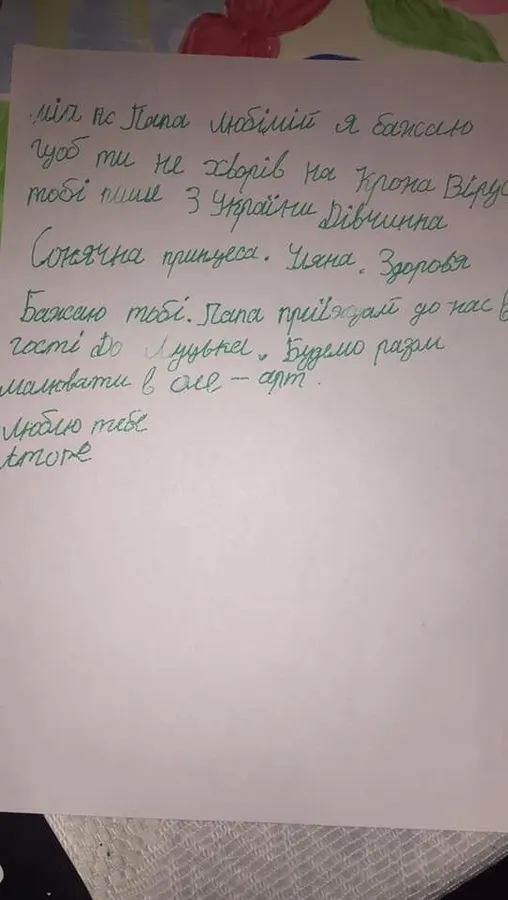 міл пс Папа любімій я бажаю
щоб ти не хворів на Крона Вірус
тобі пише З України Дівчинна
Сонячна принцеса. Уляна. Здоровя
Бажаю тобі. Папа приїжджай до нас в
гості До Луцька. Будемо разом
малювати в оле - арт.
люблю тебе
Amore